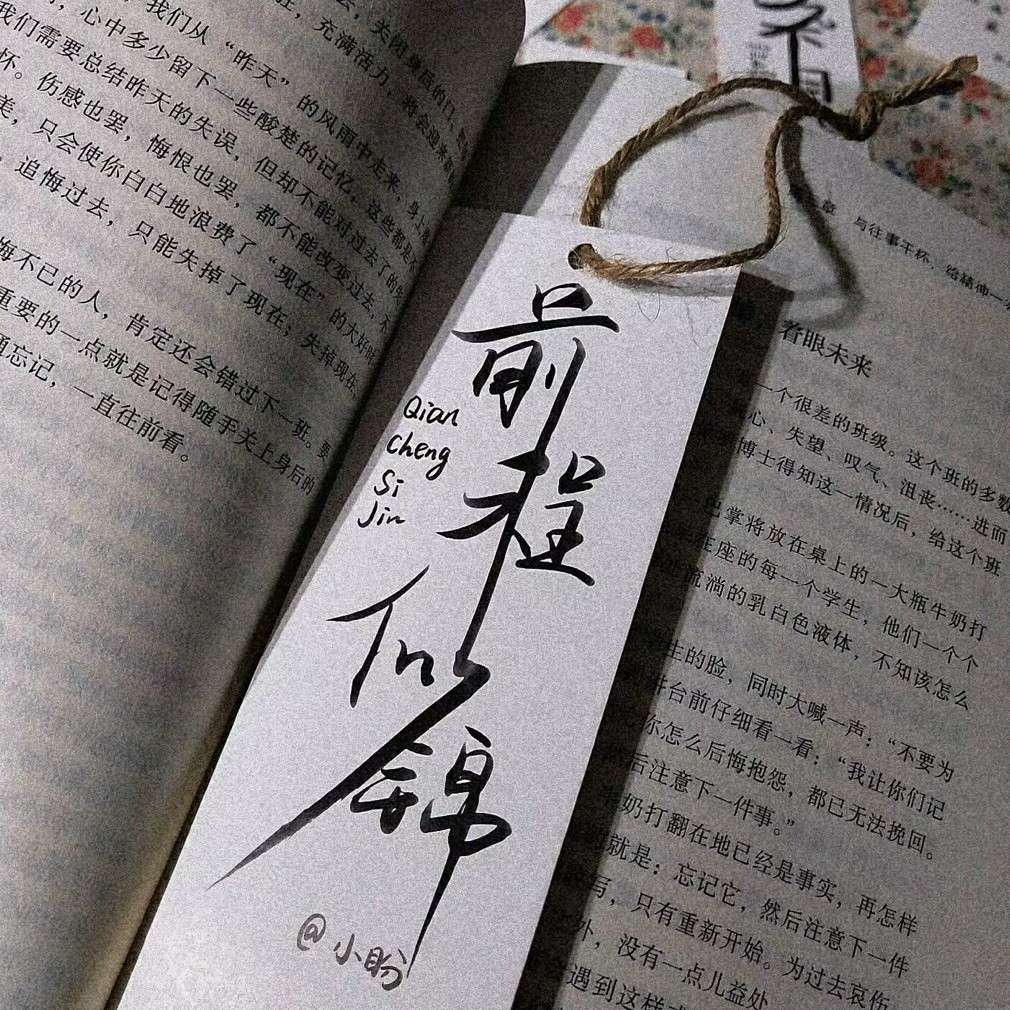 我们从“昨天”的风雨中走来，身上
心中多少留下一些酸楚的记忆，这些都是
我们需要总结昨天的失误，但却不能对过去了的
怀。伤感也罢，悔恨也罢，都不能改变过去，不
美，只会使你白白地浪费了“现在”的大好时
追悔过去，只能失掉了现在；失掉现在
悔不已的人，肯定还会错过下一班。要
重要的一点就是记得随手关上身后的
忘记，一直往前看。
前程似锦
Qian
Cheng
Si
Jin
@小盼
章 与往事干杯，给精神一
着眼未来
一个很差的班级。这个班的多数
心、失望、叹气、沮丧……进而
博士得知这一情况后，给这个班
掌将放在桌上的一大瓶牛奶打
在座的每一个学生，他们一个个
流淌的乳白色液体，不知该怎么
生的脸，同时大喊一声：“不要为
台前仔细看一看：“我让你们记
你怎么后悔抱怨，都已无法挽回。
后注意下一件事。”
奶打翻在地已经是事实，再怎样
就是：忘记它，然后注意下一件
写，只有重新开始。为过去哀伤
外，没有一点儿益处
遇到这样